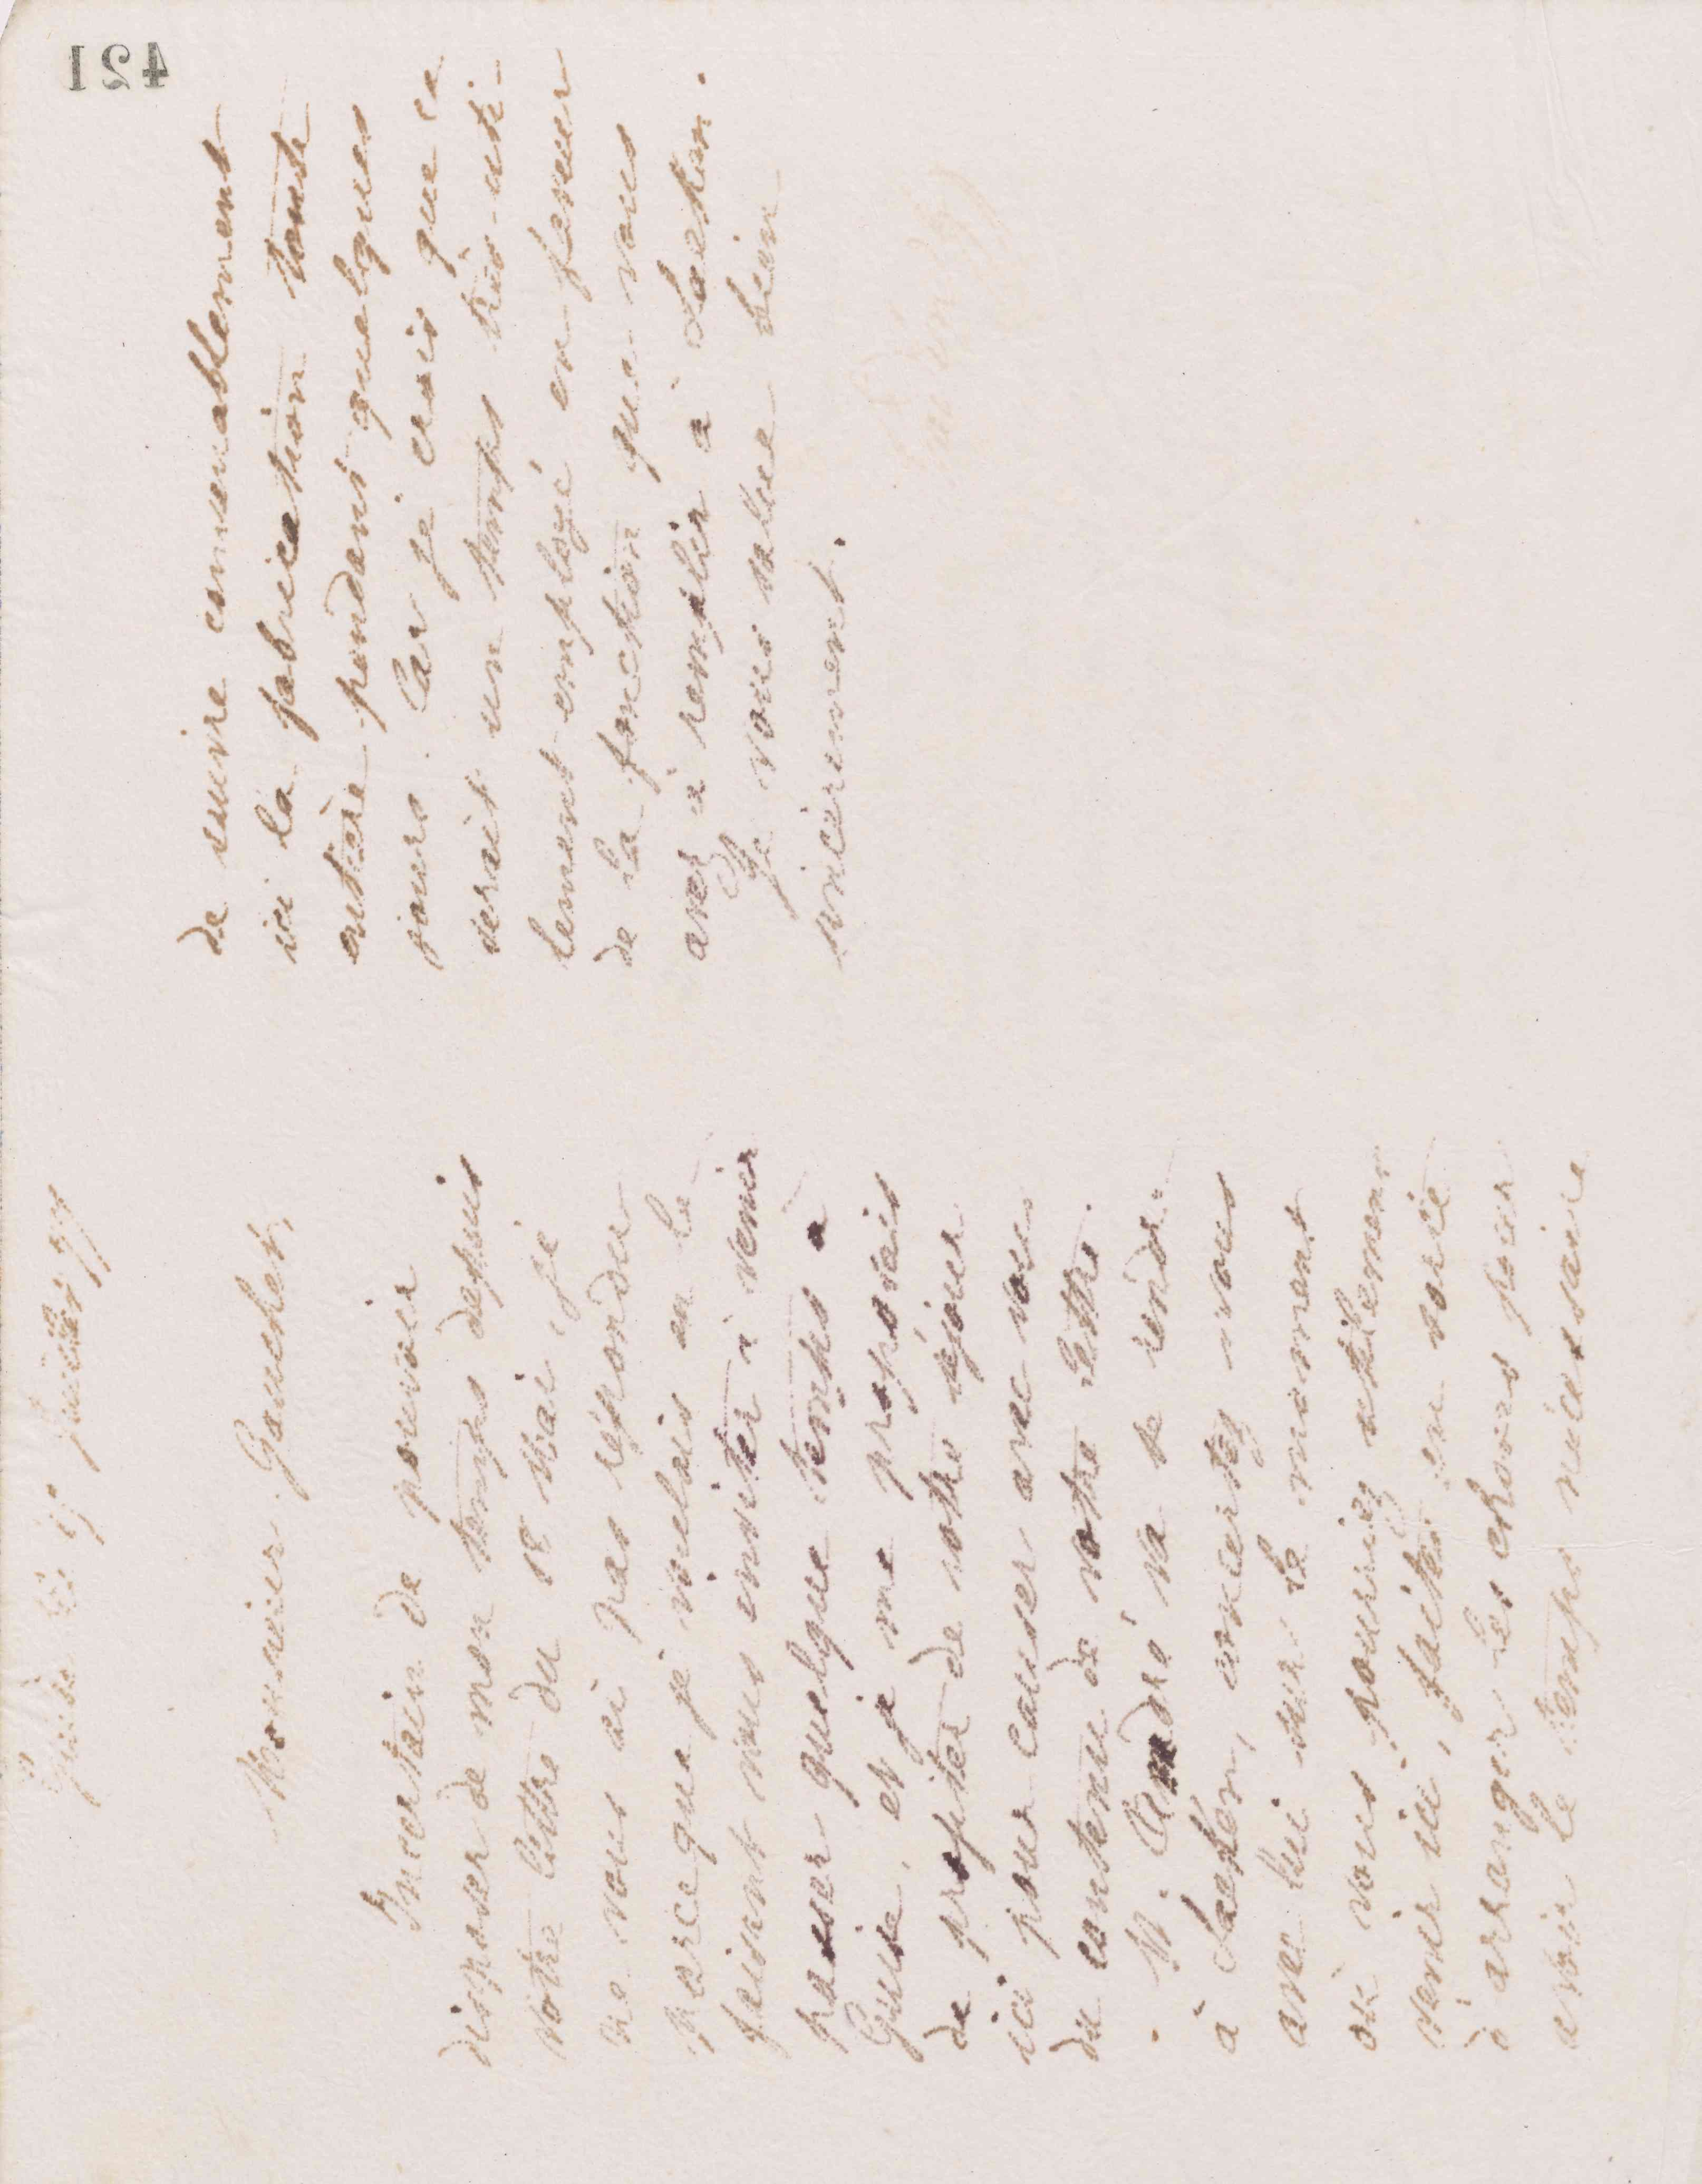 421
Guise le 17 Juillet 77
Monsieur Gauchet,
Incertain de pouvoir
disposer de mon temps depuis
votre lettre du 18 Mai, je
ne vous ai pas répondu
parce que je voulais en le
faisant vous inviter à venir
passer quelque temps à
Guise, et je me proposais
de profiter de votre séjour
ici pour causer avec vous
du contenu de votre lettre.
M. André va se rendre
à Laeken, concertez vous
avec lui sur le moment
où vous pourriez utilement
venir ici, faites en sorte
d'arranger les choses pour
avoir le temps nécessaire
de suivre convenablement
ici la fabrication toute
entière pendant quelques
jours. Car je crois que ce
serait un temps très-uti-
lement employé en faveur
de la fonction que vous
avez à remplir à Laeken.
Je vous salue bien
sincèrement.